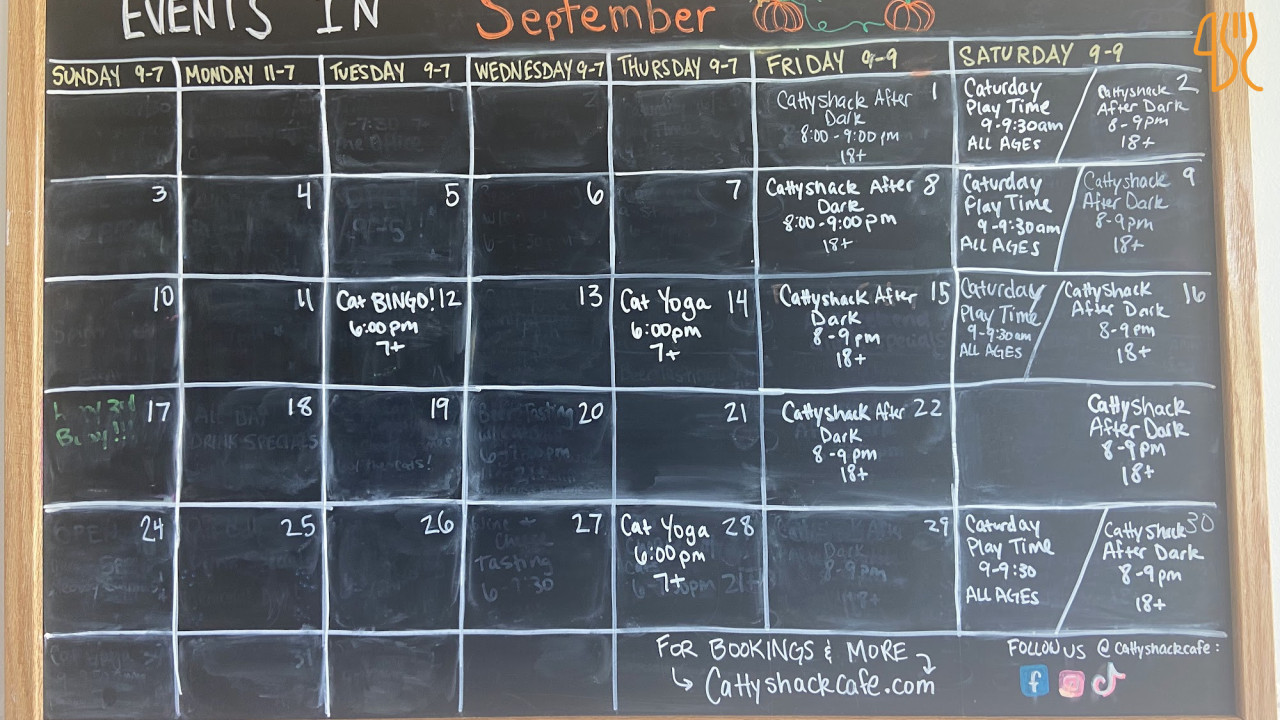 EVENTS IN September
SUNDAY 9-7
MONDAY 11-7
TUESDAY 9-7
WEDNESDAY 9-7
THURSDAY 9-7
FRIDAY 9-9
SATURDAY 9-9
1
Cattyshack After
Dark
8:00-9:00pm
18+
Caturday
Play Time
9-9:30am
ALL AGES
2
Cattyshack
After Dark
8-9pm
18+
3
4
5
6
7
8
Cattyshack After
Dark
8:00-9:00pm
18+
Caturday
Play Time
9-9:30am
ALL AGES
9
Cattyshack
After Dark
8-9pm
18+
10
11
Cat BINGO! 12
6:00pm
7+
13
Cat Yoga 14
6:00pm
7+
Cattyshack After 15
Dark
8-9pm
18+
Caturday
Play Time
9-9:30am
ALL AGES
Cattyshack 16
After Dark
8-9pm
18+
17
18
ALL DAY
DRINK SPECIALS
19
20
Beer Tasting
21
Cattyshack After 22
Dark
8-9pm
18+
Cattyshack
After Dark
8-9pm
18+
24
OPEN
25
26
27
Wine +
Cheese
Tasting
6-7:30
Cat Yoga 28
6:00pm
7+
29
Cattyshack After
Dark
8-9pm
18+
Caturday
Play Time
9-9:30
ALL AGES
Cattyshack 30
After Dark
8-9pm
18+
31
FOR BOOKINGS & MORE
Cattyshackcafe.com
FOLLOW US @cattyshackcafe: